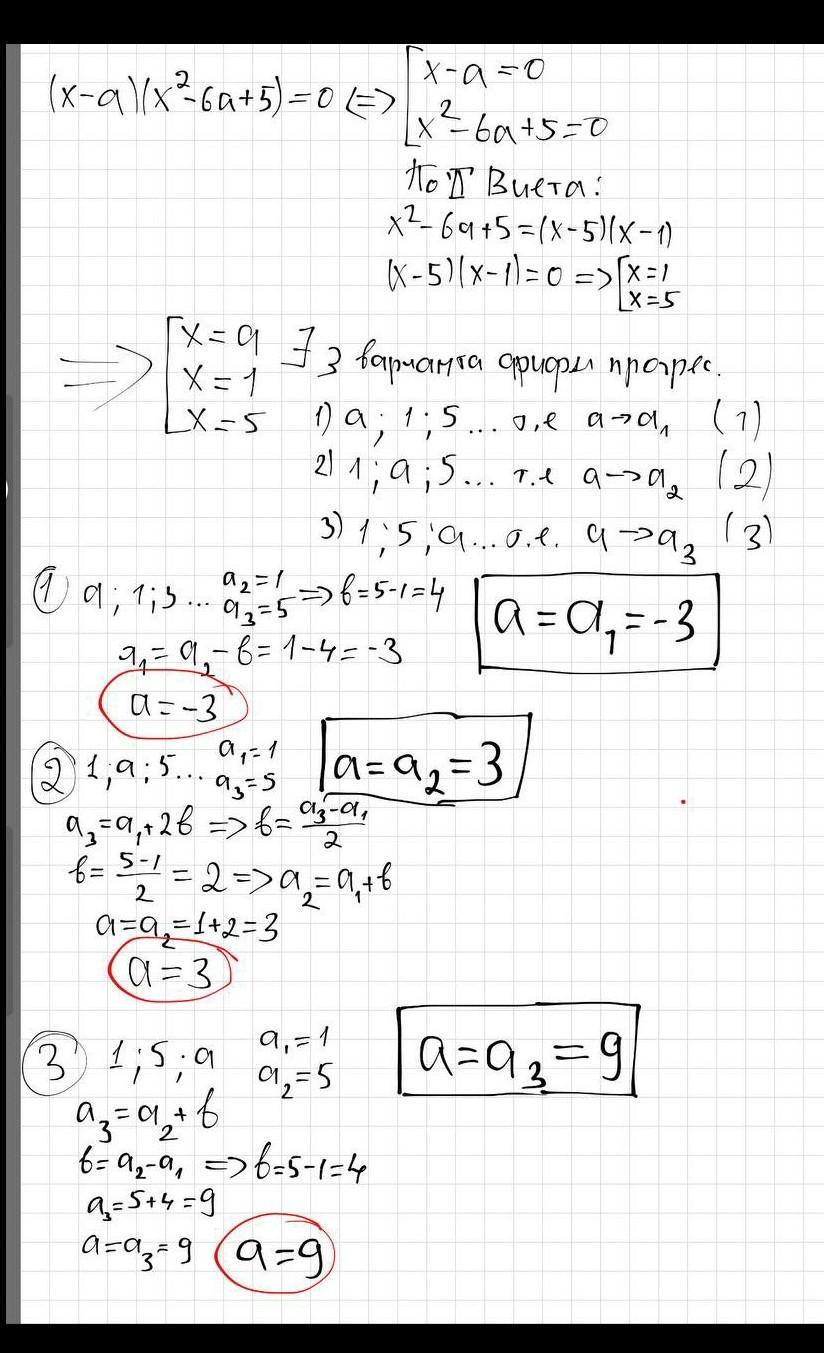 (x-a)(x²-6a+5)=0 <=> [x-a=0
x²-6a+5=0
По Т Виета:
x²-6a+5=(x-5)(x-1)
(x-5)(x-1)=0 => [x=1
x=5
=> [x=a
x=1
x=5
∃ 3 варианта арифм прогрес.
1) a; 1; 5... т.е a→a₁ (1)
2) 1; a; 5... т.е a→a₂ (2)
3) 1; 5; a... т.е. a→a₃ (3)
① a; 1; 5... a₂=1
a₃=5 => b=5-1=4
a=a₁=-3
a₁=a₂-b=1-4=-3
a=-3
② 1; a; 5... a₁=1
a₃=5
a=a₂=3
a₃=a₁+2b => b=(a₃-a₁)/2
b=(5-1)/2=2=>a₂=a₁+b
a=a₂=1+2=3
a=3
③ 1; 5; a a₁=1
a₂=5
a=a₃=9
a₃=a₂+b
b=a₂-a₁ => b=5-1=4
a₃=5+4=9
a=a₃=9 a=9